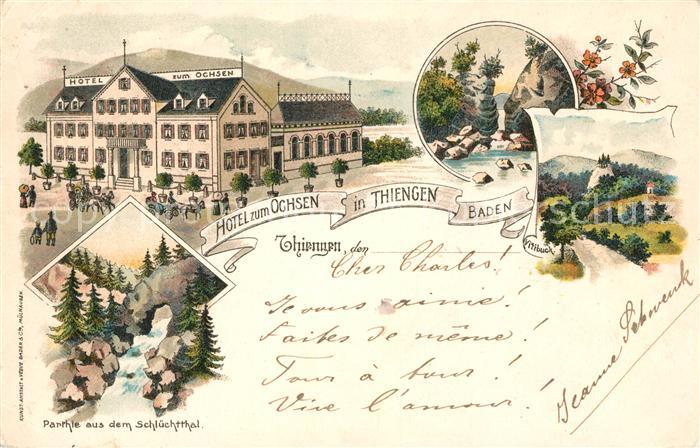 HOTEL zum OCHSEN
HOTEL zum OCHSEN in THIENGEN BADEN
Vitibuck.
Thiengen, den
Cher Charles!
Je vous aimie!
Faites de même!
Tour à tour!
Vive l'amour!
Jeanne Schwenk
Parthie aus dem Schlüchtthal.
KUNST-ANSTALT v. VEUVE BADER & CIE, MÜLHAUSEN